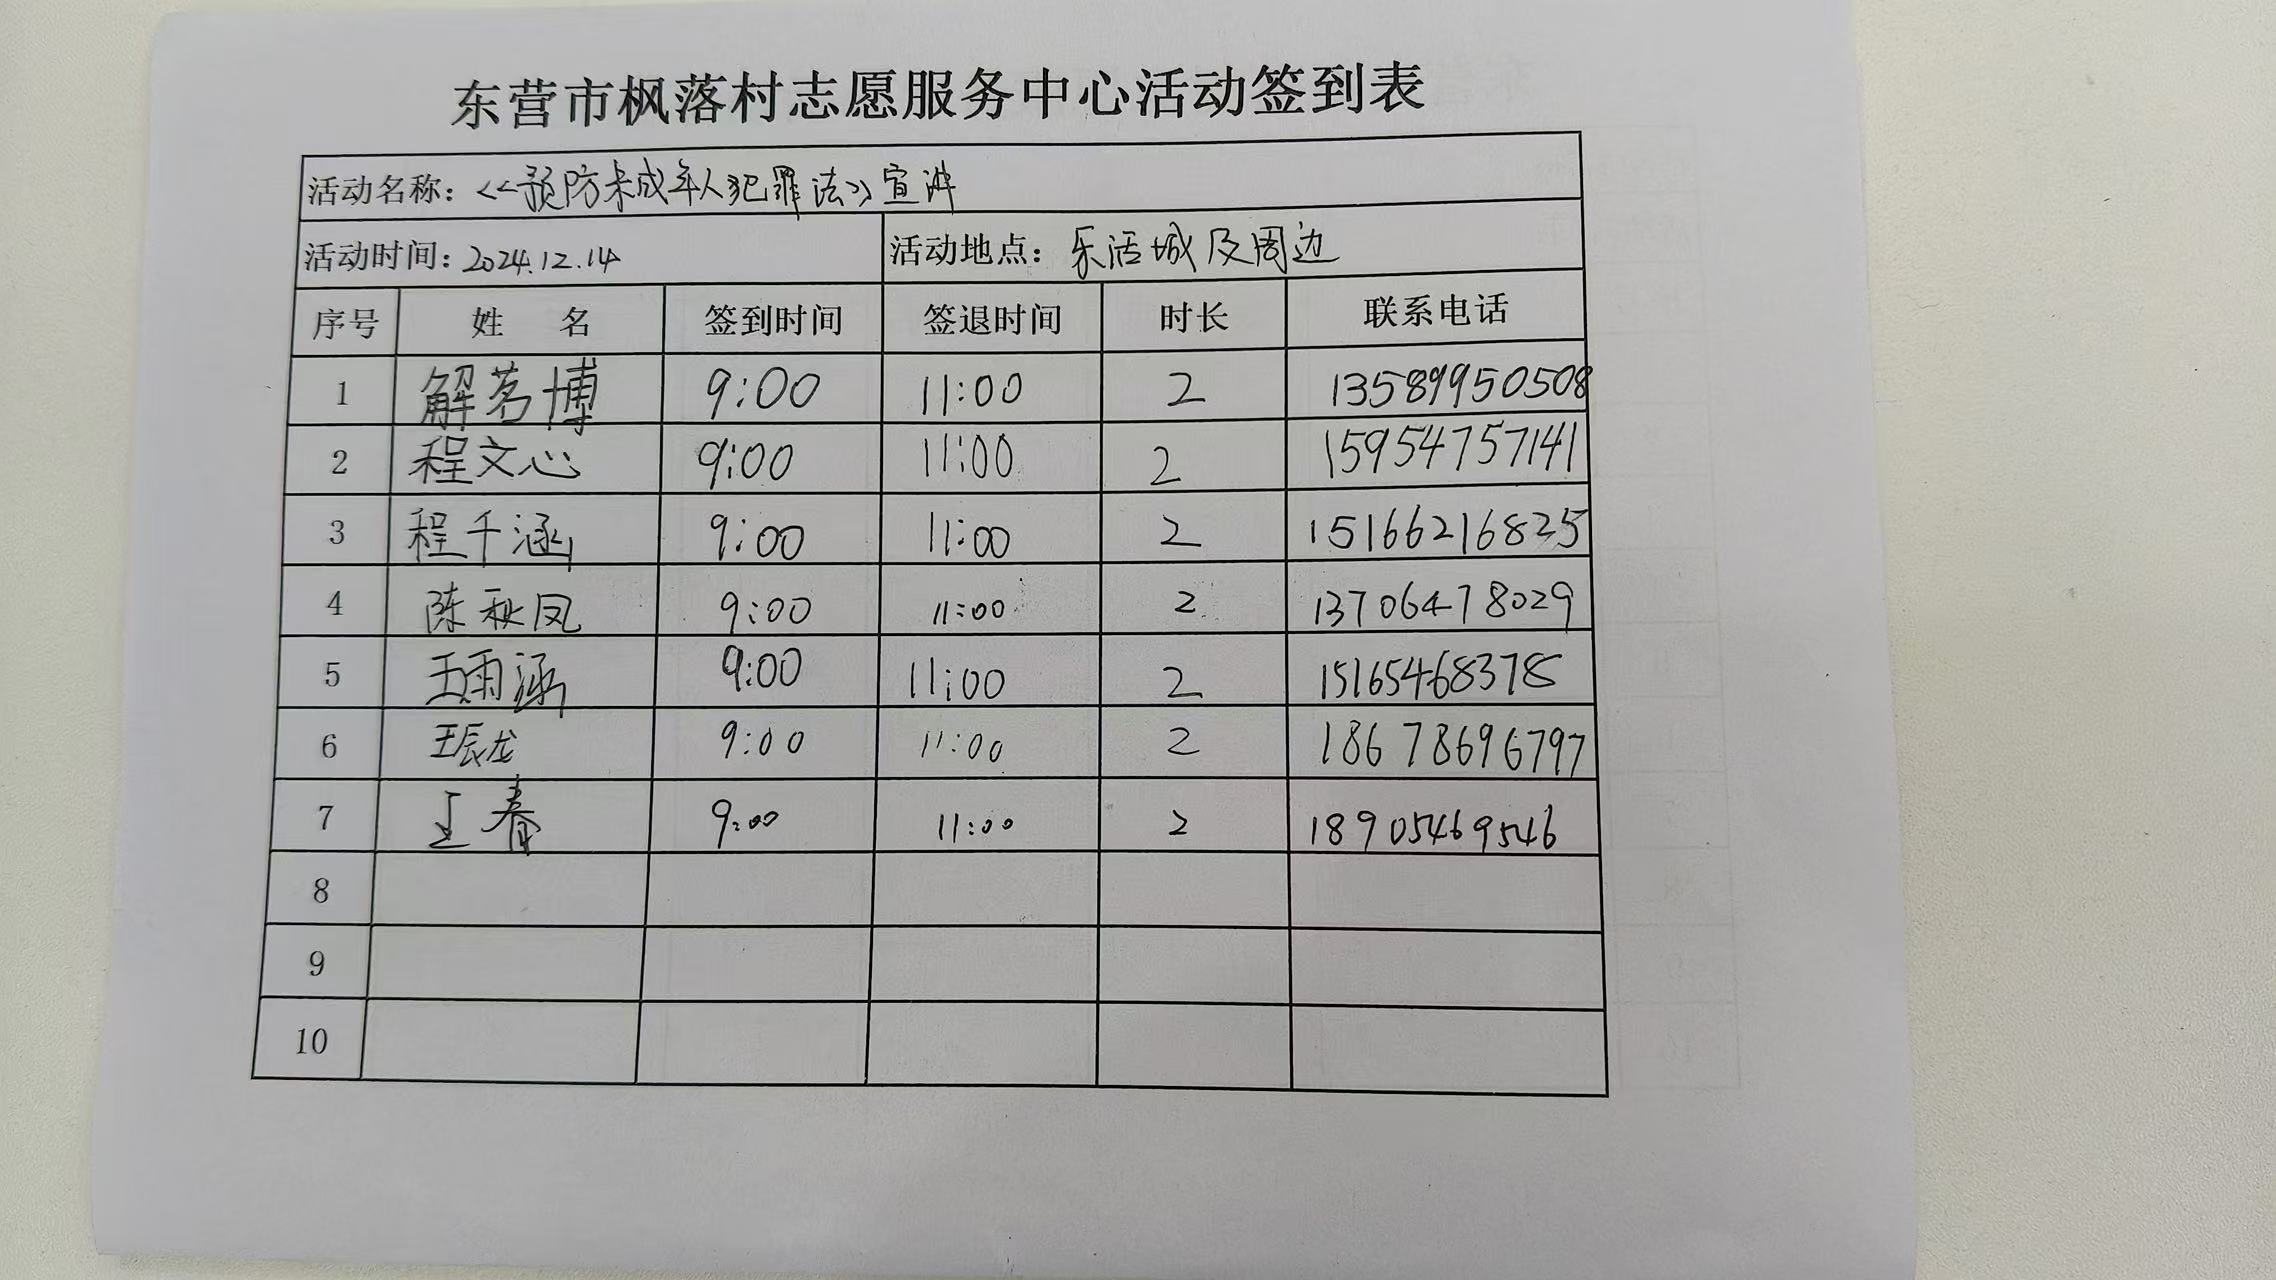 东营市枫落村志愿服务中心活动签到表
活动名称：<<预防未成年人犯罪法>>宣讲
活动时间：2024.12.14 活动地点：乐活城及周边
序号 姓 名 签到时间 签退时间 时长 联系电话
1 解茗博 9:00 11:00 2 13589950508
2 程文心 9:00 11:00 2 15954757141
3 程千涵 9:00 11:00 2 15166216825
4 陈秋凤 9:00 11:00 2 13706478029
5 王雨涵 9:00 11:00 2 15165468378
6 王辰龙 9:00 11:00 2 18678696797
7 王春 9:00 11:00 2 18905469546
8
9
10